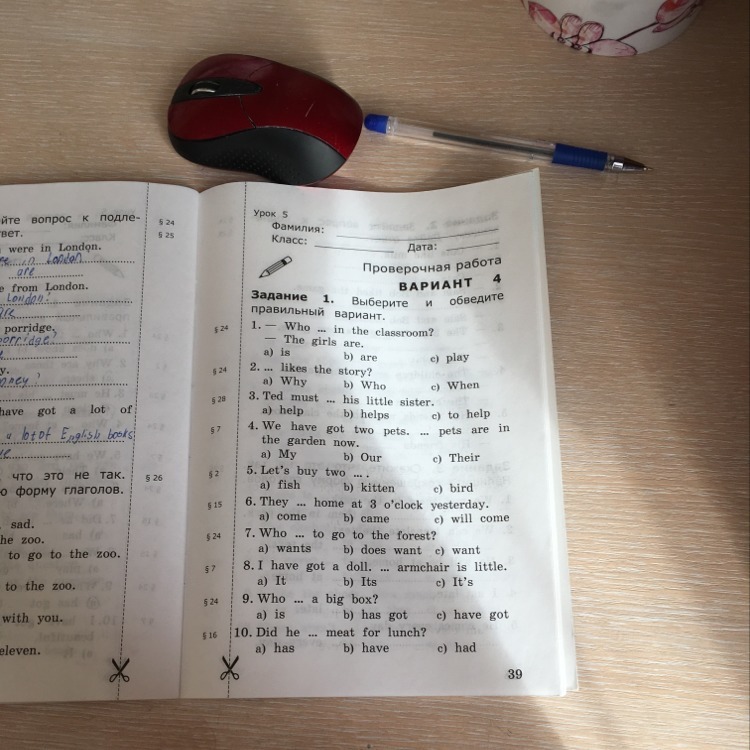 йте вопрос к подле-
вет.
§ 24
§ 25
were in London.
in London
are
e from London.
London?
are
porridge.
porridge?
y.
have got a lot of
a lot of English books
что это не так.
§ 26
ю форму глаголов.
sad.
he zoo.
to go to the zoo.
to the zoo.
with you.
eleven.
Урок 5
Фамилия:
Класс:
Дата:
Проверочная работа
ВАРИАНТ 4
Задание 1. Выберите и обведите
правильный вариант.
§ 24
1. — Who ... in the classroom?
— The girls are.
a) is b) are c) play
§ 24
2. ... likes the story?
a) Why b) Who c) When
§ 28
3. Ted must ... his little sister.
a) help b) helps c) to help
§ 7
4. We have got two pets. ... pets are in
the garden now.
a) My b) Our c) Their
§ 2
5. Let's buy two ... .
a) fish b) kitten c) bird
§ 15
6. They ... home at 3 o'clock yesterday.
a) come b) came c) will come
§ 24
7. Who ... to go to the forest?
a) wants b) does want c) want
§ 7
8. I have got a doll. ... armchair is little.
a) It b) Its c) It's
§ 24
9. Who ... a big box?
a) is b) has got c) have got
§ 16
10. Did he ... meat for lunch?
a) has b) have c) had
39